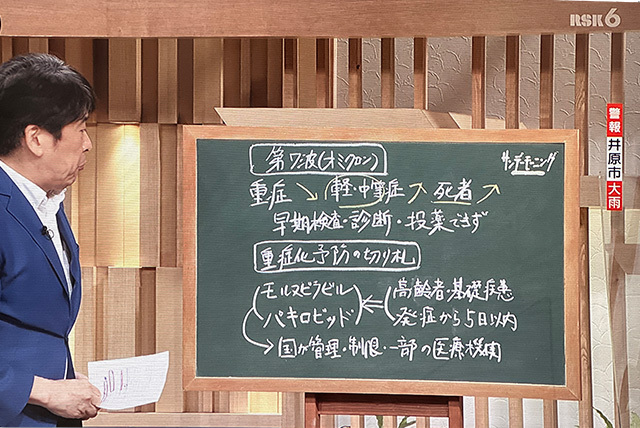 RSK6
警報 井原市 大雨
サンデーモーニング
第7波(オミクロン)
重症↘ 軽・中等症↗ 死者↗
早期検査・診断・投薬できず
重症化予防の切り札
モルヌピラビル ⇐ 高齢者・基礎疾患
パキロビッド 発症から5日以内
→国が管理・制限・一部の医療機関